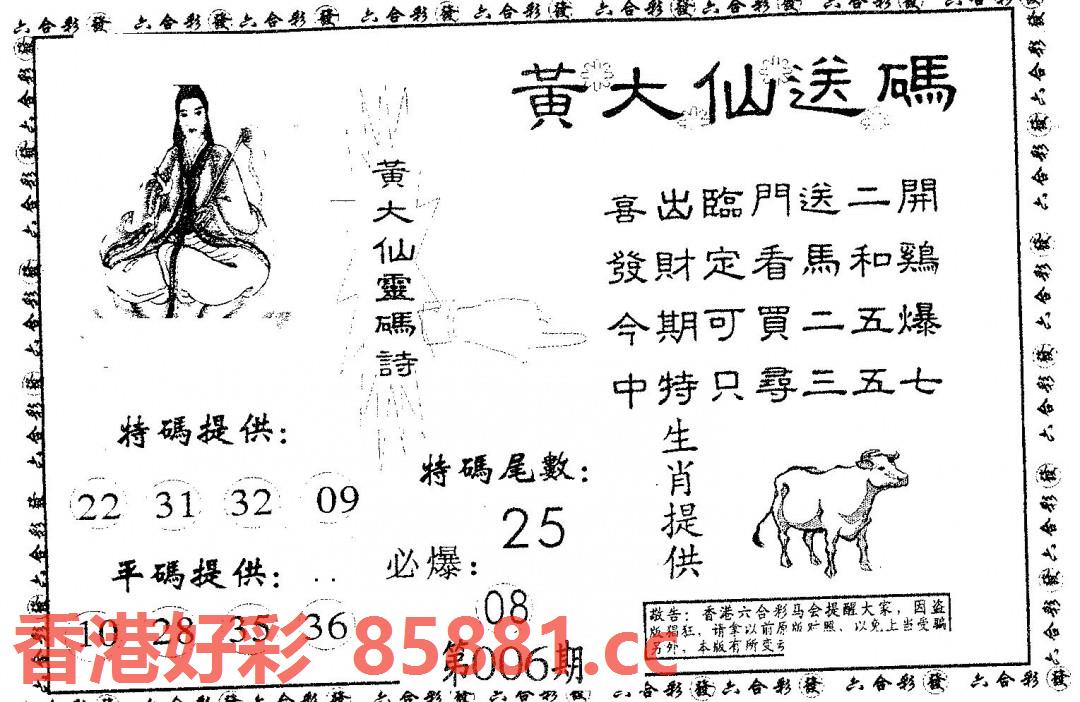 六合彩發 六合彩發 六合彩發 六合彩發 六合彩發 六合彩發 六合彩發 六合彩發 六合彩
黃大仙送碼
黃大仙靈碼詩
喜出臨門送二開
發財定看馬和鷄
今期可買二五爆
中特只尋三五七
特碼提供：
22 31 32 09
特碼尾數：
25
平碼提供：
10 28 35 36
必爆：
08
第006期
生肖提供
敬告：香港六合彩马会提醒大家，因盗
版猖狂，请拿以前原版对照、以免上当受騙
另外、本版有所变
香港好彩 85881.cc